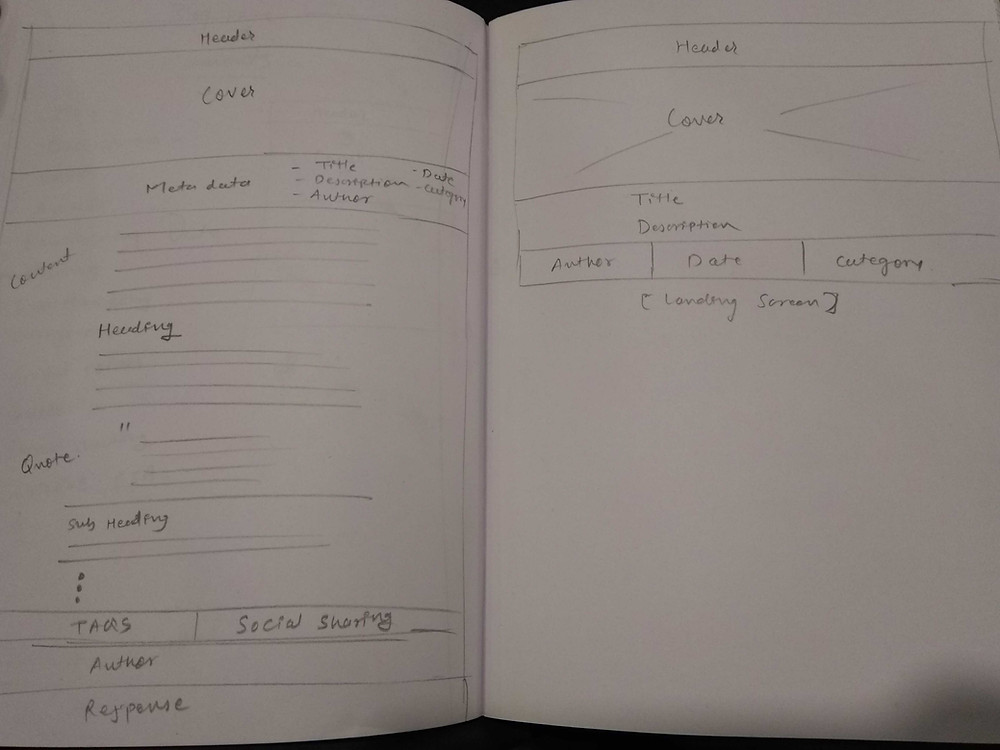 Header
Cover
Meta data
- Title
- Description
- Author
- Date
- Category
Content
Heading
"
Quote.
Sub Heading
TAGS
Social Sharing
Author
Response
Header
Cover
Title
Description
Author
Date
Category
[ Landing Screen ]